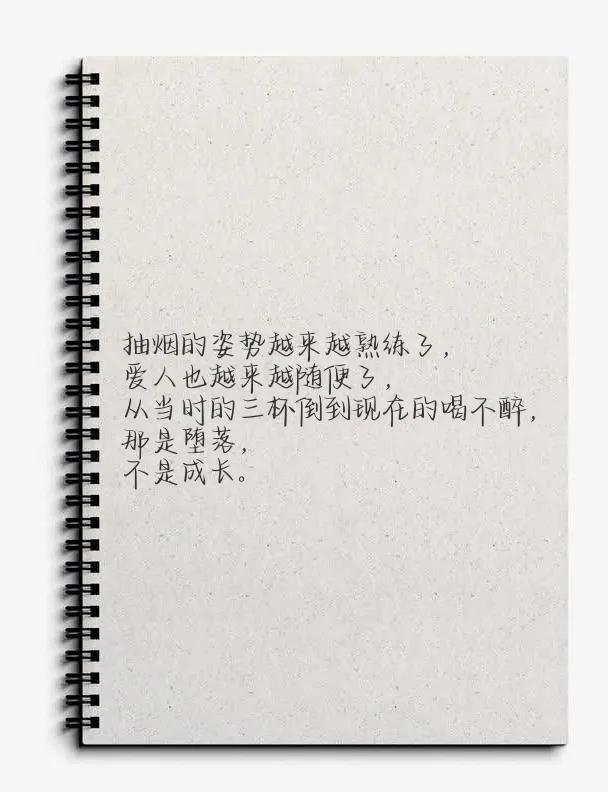 抽烟的姿势越来越熟练了，
爱人也越来越随便了，
从当时的三杯倒到现在的喝不醉，
那是堕落，
不是成长。